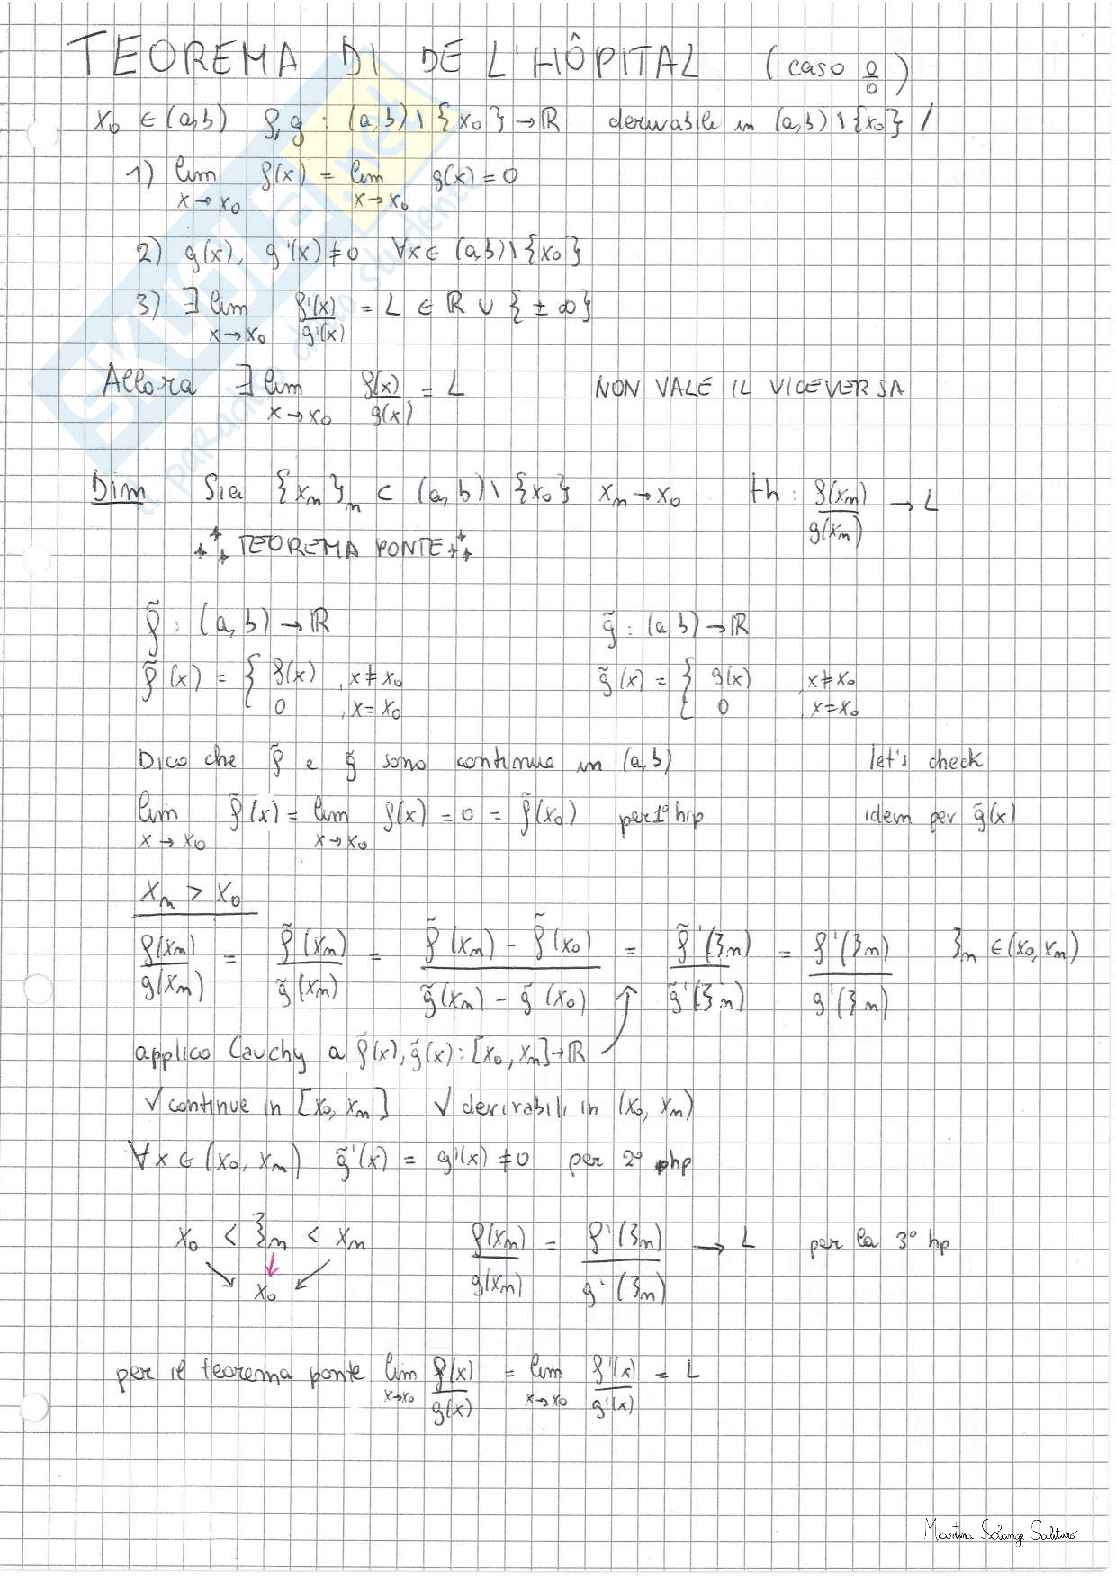 TEOREMA DI DE L'HÔPITAL (caso 0/0)
x₀ ∈ (a,b) f,g : (a,b) \ {x₀} → ℝ derivabile in (a,b) \ {x₀} /
1) lim x→x₀ f(x) = lim x→x₀ g(x) = 0
2) g(x), g'(x) ≠ 0 ∀x ∈ (a,b) \ {x₀}
3) ∃ lim x→x₀ f'(x)/g'(x) = L ∈ ℝ ∪ {±∞}
Allora ∃ lim x→x₀ f(x)/g(x) = L NON VALE IL VICEVERSA
Dim Sia {xₙ}ₙ ⊂ (a,b) \ {x₀} xₙ → x₀ th : f(xₙ)/g(xₙ) → L
TEOREMA PONTE
f̃ : (a,b) → ℝ g̃ : (a,b) → ℝ
f̃(x) = { f(x) , x≠x₀ g̃(x) = { g(x) , x≠x₀
0 , x=x₀ 0 , x=x₀
Dico che f̃ e g̃ sono continue in (a,b) let's check
lim x→x₀ f̃(x) = lim x→x₀ f(x) = 0 = f̃(x₀) per 1° hp idem per g̃(x)
xₙ > x₀
f(xₙ)/g(xₙ) = f̃(xₙ)/g̃(xₙ) = f̃(xₙ) - f̃(x₀) / g̃(xₙ) - g̃(x₀) = f̃'(ξₙ)/g̃'(ξₙ) = f'(ξₙ)/g'(ξₙ) ξₙ ∈ (x₀, xₙ)
applico Cauchy a f̃(x), g̃(x) : [x₀, xₙ] → ℝ
√ continue in [x₀, xₙ] √ derivabili in (x₀, xₙ)
∀x ∈ (x₀, xₙ) g̃'(x) = g'(x) ≠ 0 per 2° hp
x₀ < ξₙ < xₙ f(xₙ)/g(xₙ) = f'(ξₙ)/g'(ξₙ) → L per la 3° hp
x₀
per il teorema ponte lim x→x₀ f(x)/g(x) = lim x→x₀ f'(x)/g'(x) = L